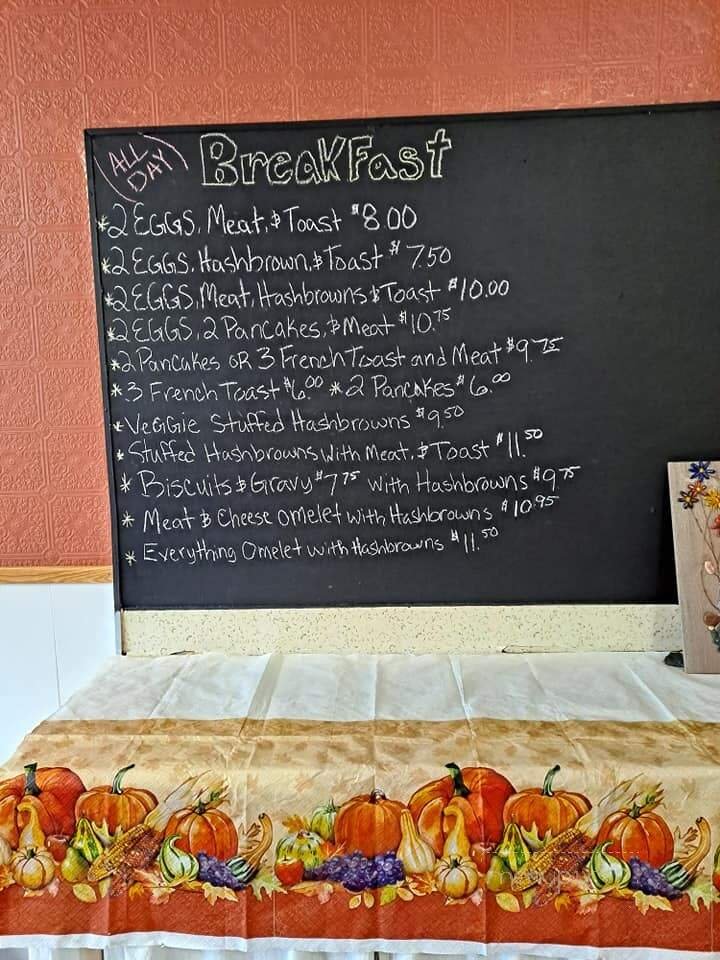 ALL DAY BreakFast
*2 EGGS, Meat, & Toast $8.00
*2 EGGS, Hashbrown, & Toast $7.50
*2 EGGS, Meat, Hashbrowns & Toast $10.00
*2 EGGS, 2 Pancakes, & Meat $10.75
*2 Pancakes OR 3 French Toast and Meat $9.75
*3 French Toast $6.00 *2 Pancakes $6.00
*Veggie Stuffed Hashbrowns $9.50
*Stuffed Hashbrowns with Meat, & Toast $11.50
* Biscuits & Gravy $7.75 with Hashbrowns $9.75
* Meat & Cheese omelet with Hashbrowns $10.95
* Everything Omelet with Hashbrowns $11.50